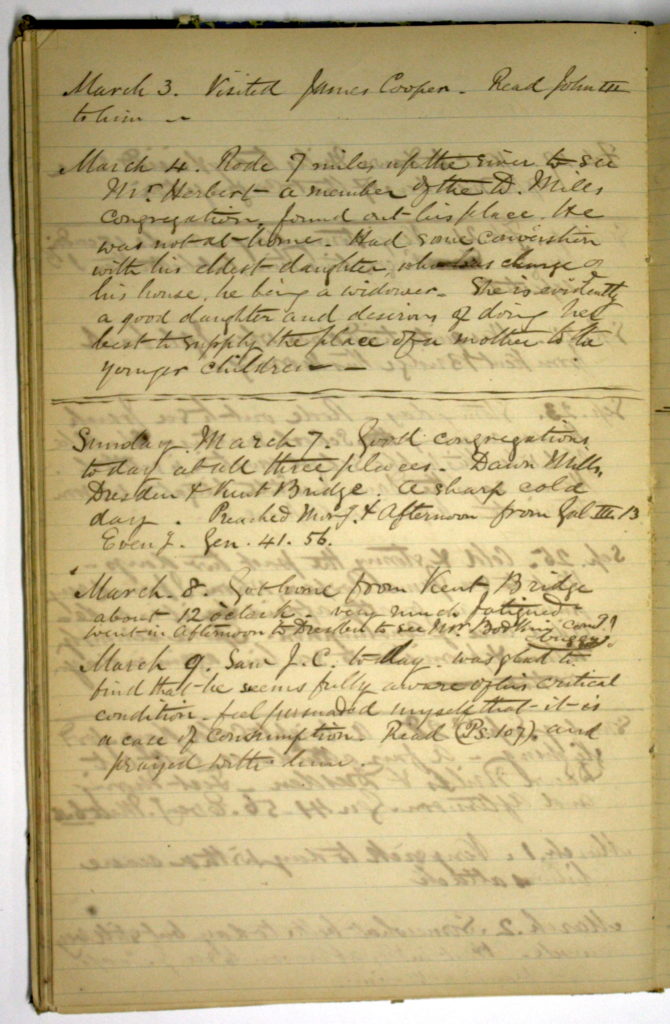 March 3. Visited James Cooper. Read John III
to him —
March 4. Rode 7 miles up the river to see
Mr. Herbert a member of the D. Mills
congregation, found out his place. He
was not at home. Had some conversation
with his eldest daughter, who has charge of
his house, he being a widower. She is evidently
a good daughter and desirous of doing her
best to supply the place of a mother to the
younger children —
Sunday March 7. Good congregations
to day at all three places. Dawn Mills,
Dresden & Kent Bridge. A sharp cold
day. Preached Morng. & Afternoon from Gal III. 13
Eveng. Gen. 41. 56.
March. 8. Got home from Kent Bridge
about 12 o'clock. very much fatigued.
went in Afternoon to Dresden to see Mr.
buggy.
March 9. Saw J. C. to day. was glad to
find that he seems fully aware of his critical
condition. feel persuaded myself that it is
a case of Consumption Read (Ps. 107). and
prayed with him.